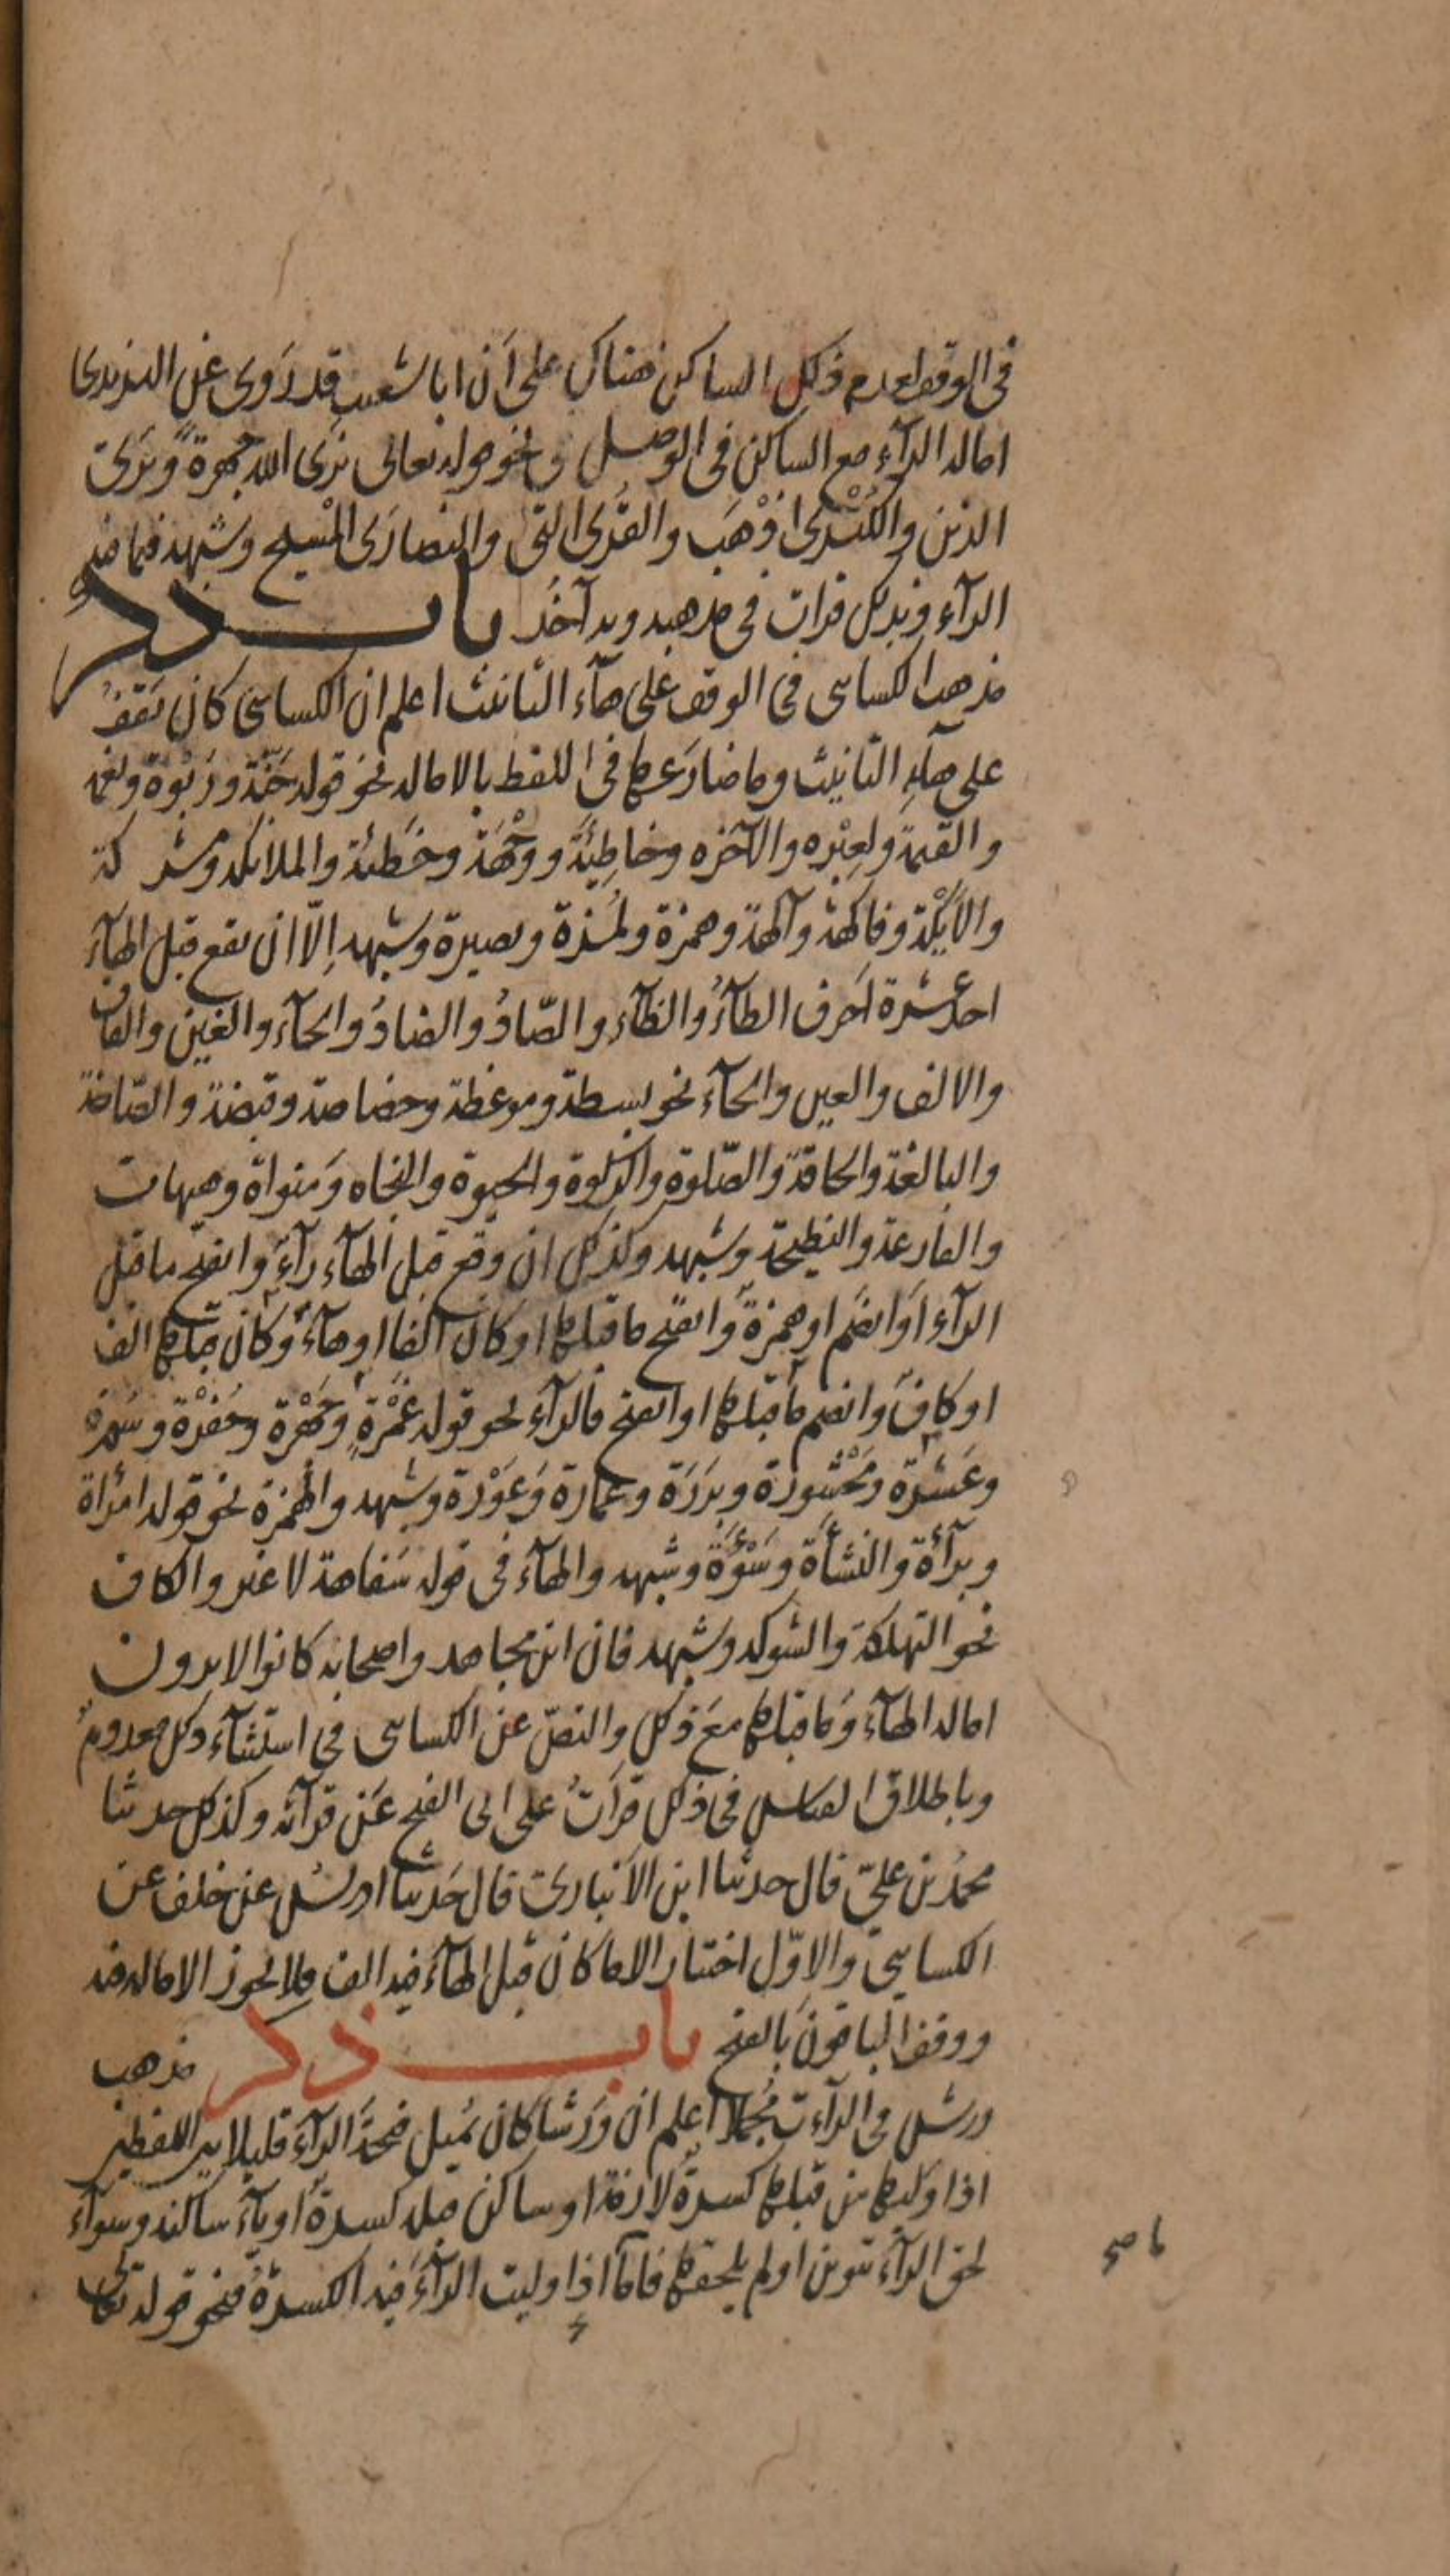 فى الوقف لعدم ذلك الساكن هناك على أن ابا شعيب قد رَوى عن اليزيدى
امالة الرآء مع الساكن فى الوصل فى نحو قوله تعالى نرَى الله جهرة وَترَى
الذين والكُبْرى اذْهَب والقُرى التى والنصارَى المسيح وشبهه فما فيه
الرآء وبذلك قرات فى مذهبه وبه آخُذ باب ذكر
مذهب الكسائى فى الوقف على هآء التانيث اعلم ان الكسائى كان يَقفُ
على هآءِ التانيث وما ضارَعها فى اللفظ بالامالة نحو قوله جَنّة ورَبْوة ونعمة
والقيمة ولعِبْره والآخره وخاطِئَة ووِجْهَة وخَطيئة والملائكة ومشركة
والأيْكَة وفاكهة وآلهة وهمزة ولُمَزة وبصيرة وشبهه إلّا ان يقع قبل الهآءَ
احد عشرة احرف الطآءُ والظآء والصّادُ والضادُ والخآء والغين والقاف
والالف والعين والحآء نحو بسطة وموعظة وخصاصة وقبضة والصّاخة
والبالغة والحاقة والصّلوة والزكوة والحيوة والنجاه وَمنواة وهيهات
والقارعة والنطيحة وشبهه وكذلك ان وقع قبل الهآء رآءً وانفتح ما قبل
الرآء اَو انضم او همزةً وانفتح ما قبلها او كان الفا او هآءً وكان قبلها الف
او كافً وانضم ما قبلها او انفتح فالرآء نحو قوله غَمْرَةٍ وجَهْرَة وحُفْرَة وسَفرة
وعَشرة ومَحْشورَة وبرَرَة وعمارة وَعَوْرة وشبهه والهمزة نحو قوله امرْأة
وبرآءة والنشأة وسَوْءَة وشبهه والهآء فى قوله سَفاهة لا غير والكاف
نحو التهلكة والشوكة وشبهه فان ابن مجاهد واصحابه كانوا لا يرون
امالة الهآء وَما قبلها معَ ذلك والنصّ عن الكسائى فى استثنآء ذلك معدومٌ
وباطلاق القياس فى ذلك قرَأتُ على ابى الفتح عَن قرآئه وكذلك حدثنا
محمدُ بن علىّ قال حدثنا ابن الأنبارىّ قال حَدثنا ادريس عن خلف عن
الكسائىّ والاوّل اختار الا ما كان قبل الهآءَ فيه الف فلا يجوز الامالة فيه
ووقف الباقونَ بالفتح باب ذكر مذهب
ورش فى الرآءت مُجملا اعلم ان وَرشا كان يُميل فتحةَ الرآء قليلا بين اللفظين
اذا وَليها من قبلها كسرةٌ لازمة او ساكن قبله كسرةٌ او يآءً ساكنه وسوآء
لحق الرآءَ تنوين او لم يلحقها فامآ اذا وليت الرآءَ فيه الكسرةُ فنحو قوله تعالى